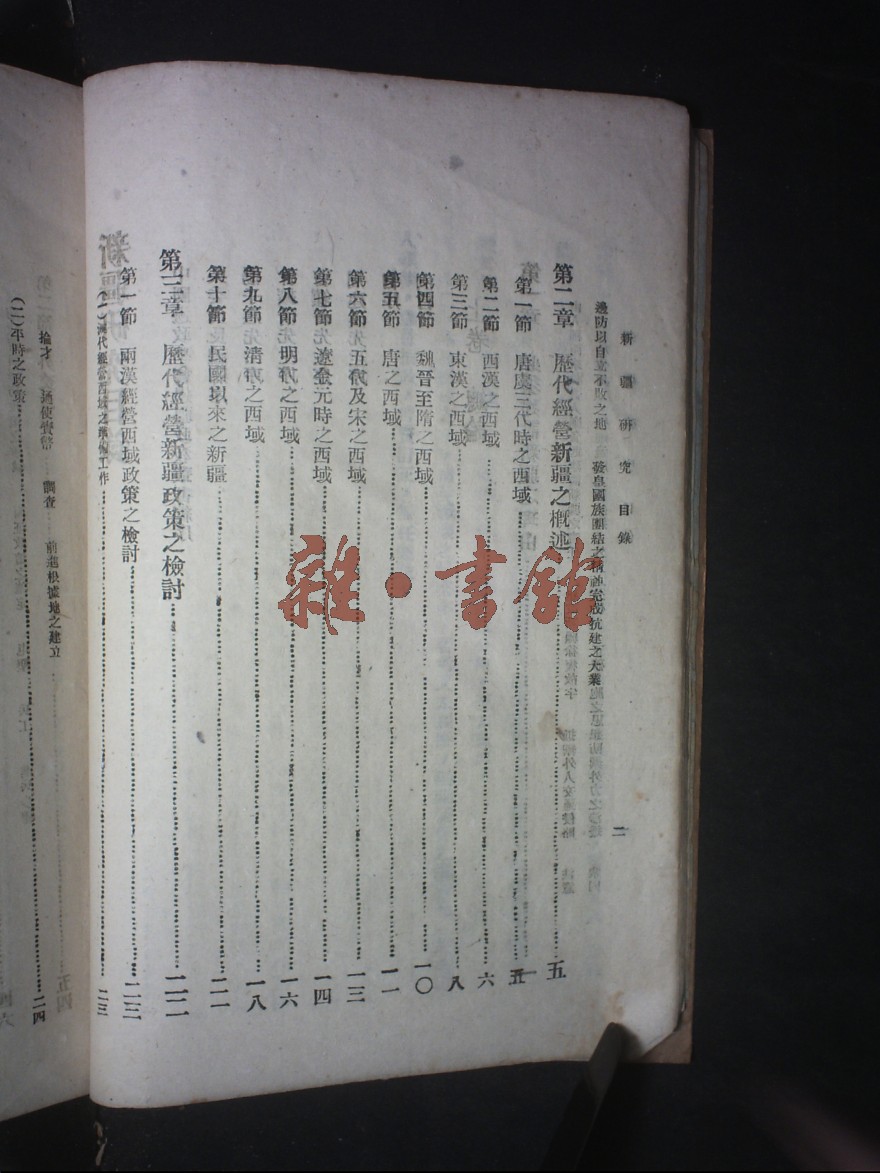 新疆研究目錄
二
邊防以自立不敗之地　發皇國族團結之精神完成抗建之大業
第二章　歷代經營新疆之概述……五
第一節　唐虞三代時之西域……五
第二節　西漢之西域……六
第三節　東漢之西域……八
第四節　魏晉至隋之西域……一〇
第五節　唐之西域……一一
第六節　五代及宋之西域……一三
第七節　遼金元時之西域……一四
第八節　明代之西域……一六
第九節　清代之西域……一八
第十節　民國以來之新疆……二一
第三章　歷代經營新疆政策之檢討……二二
第一節　兩漢經營西域政策之檢討……二三
(一)漢代經營西域之準備工作……二三
掄才　通使賞幣　調查　前進根據地之建立
(二)平時之政策……二四
雜·書館